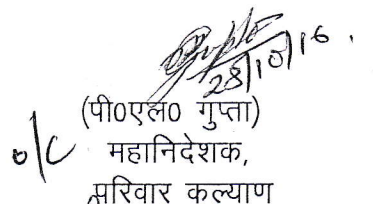 28/10/16.
(पी0एल0 गुप्ता)
o/c महानिदेशक,
परिवार कल्याण